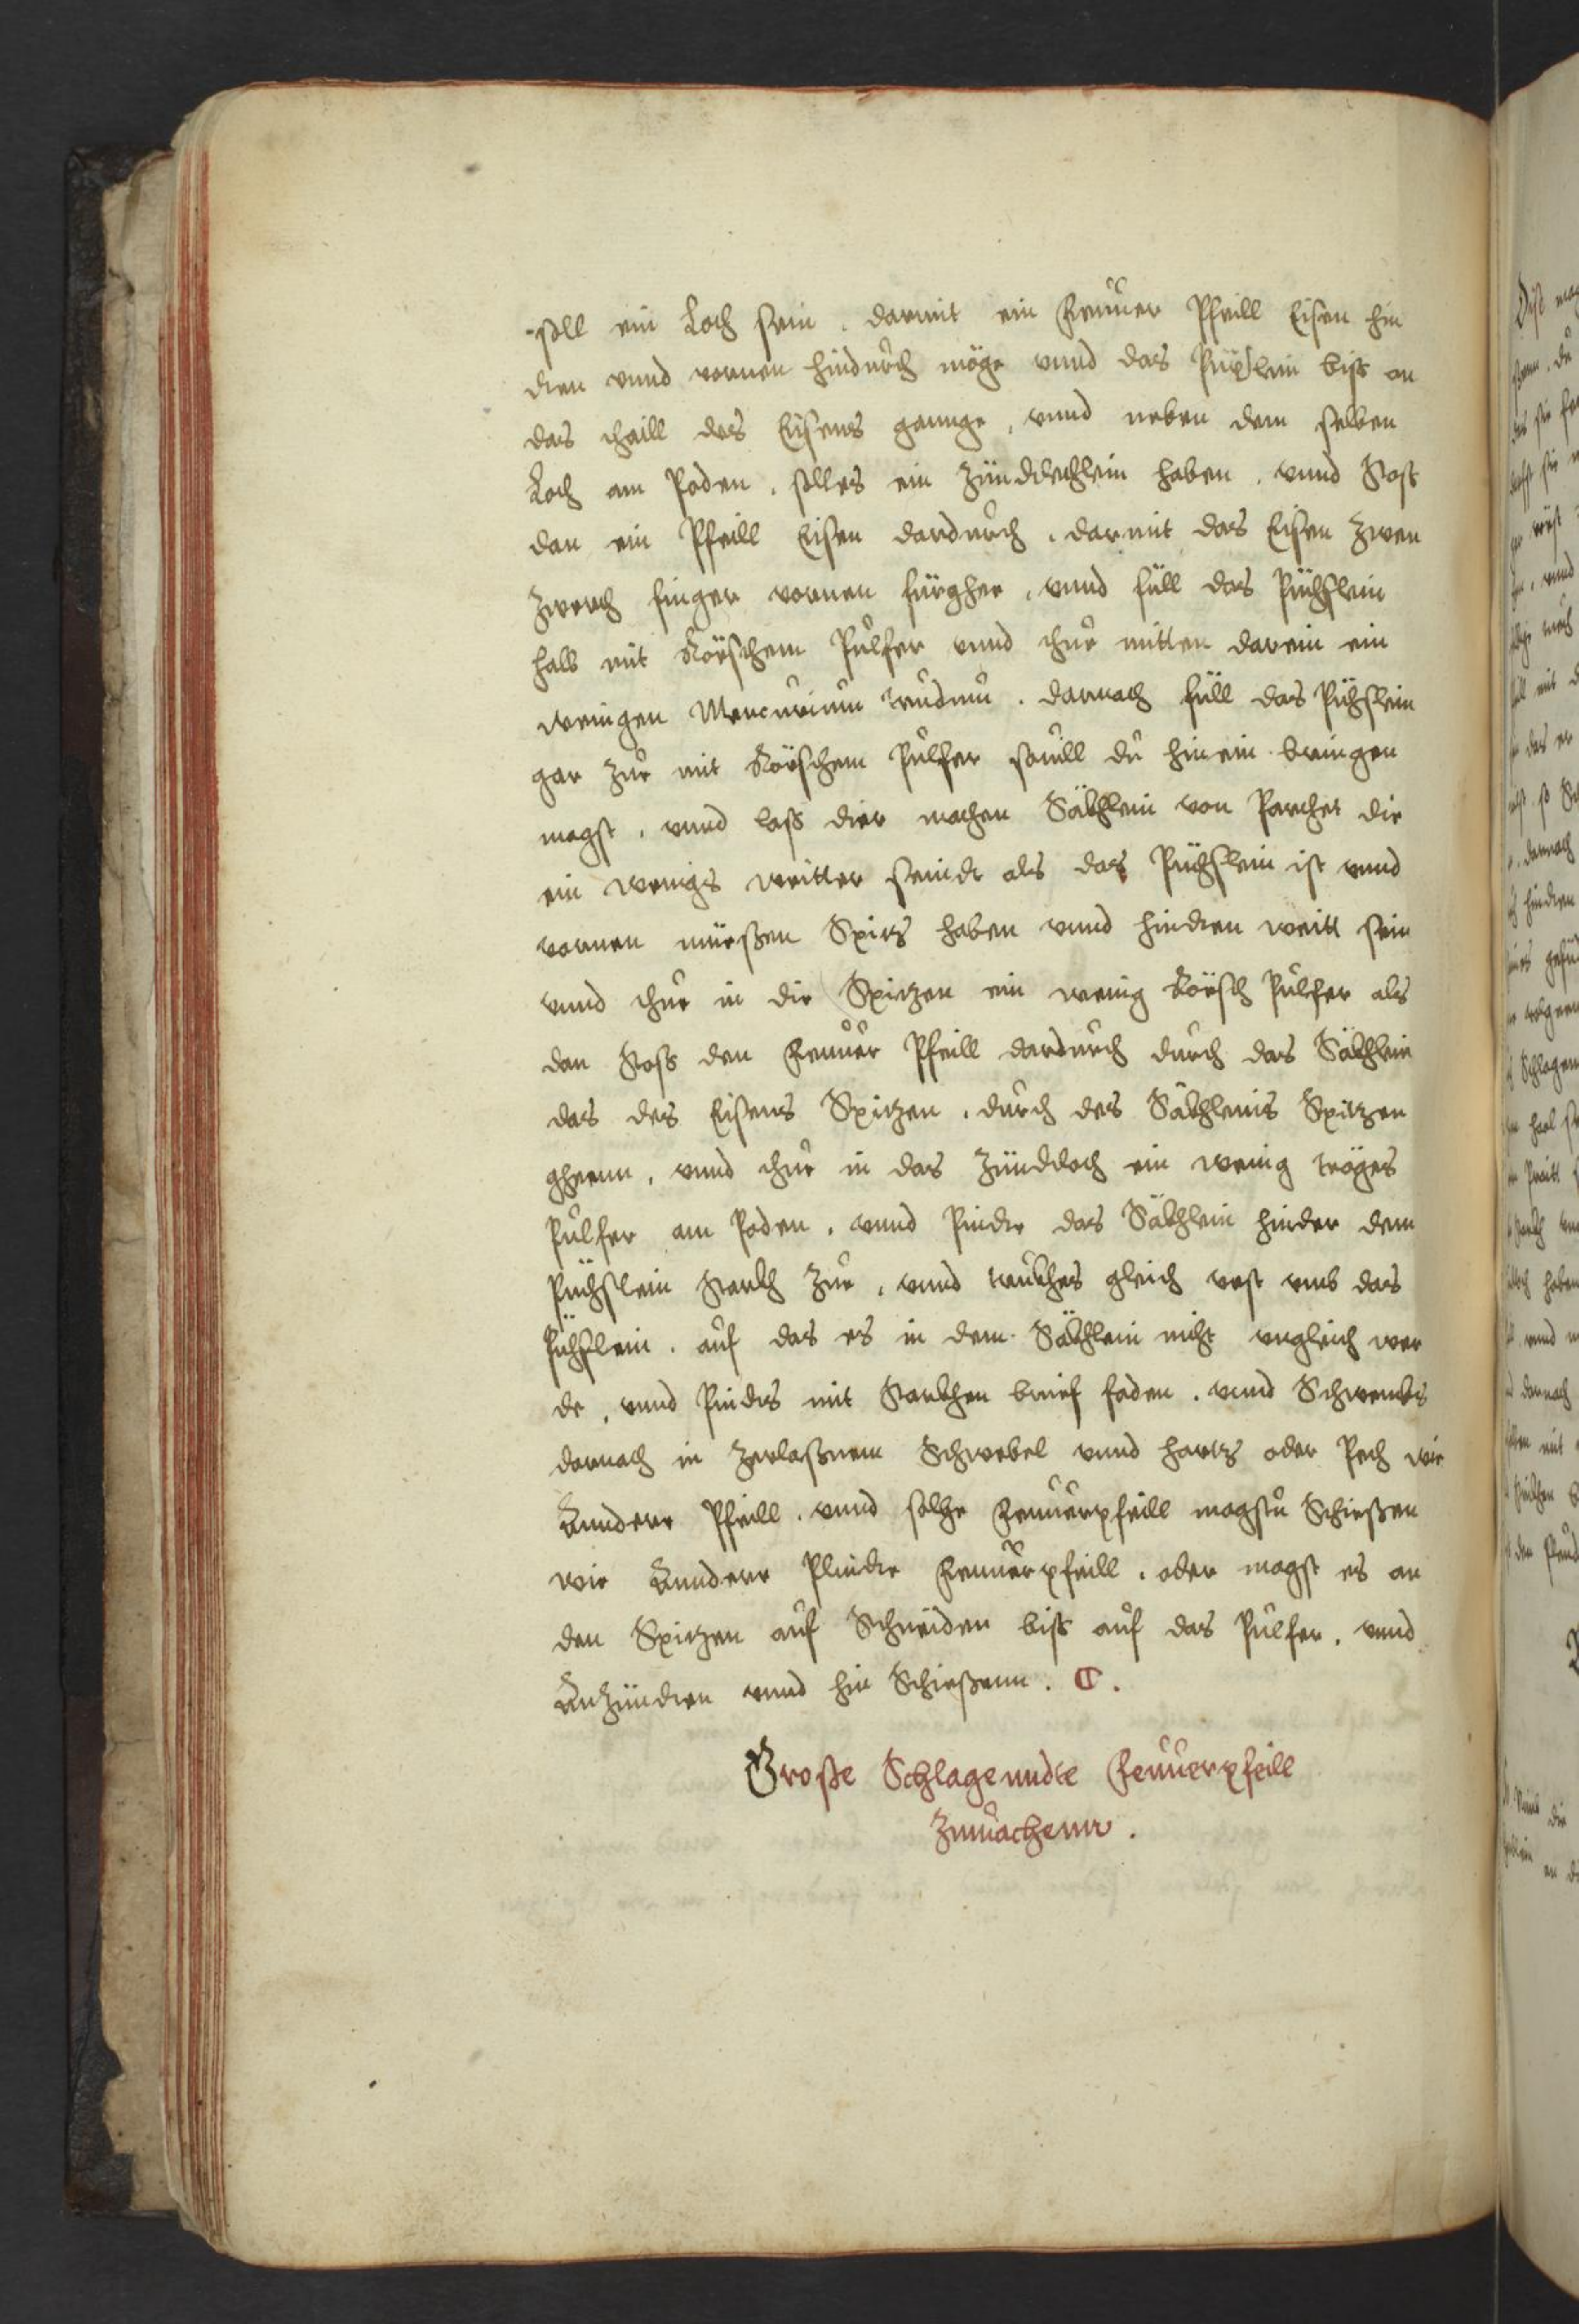 soll ein Loch sein. darmit ein Feuͦuer Pfeill Eisen hin
dren vnnd vornen hinduͦrch möge vnnd das Püxslein biß an
das thaill des Eisens ganng, vnnd neben dem selben
Loch am Poden. solles ein Zündlechlein haben. vnnd Stoß
dan ein Pfeill Eisen darduͦrch. darmit das Eisen Zwen
Zwerch finger vornen fürgher, vnnd füll das Püchslein
halb mit Röschem Puͦlfer vnnd thuͦe mitten darein ein
wenigen Mercurium . darnach füll das Püchslein
gar Zuͦe mit Röschem Puͦlfer souill duͦ hinein bringen
magst, vnnd laß dier machen Säckhlein von Parchet die
ein wenigs weitter seindt als das Püchslein ist vnnd
vornen müeßen Spitz haben vnnd hindren weitt sein
vnnd thuͦe in die Spitzen ein wenig Rösch Puͦlfer als
dan Stoß den Feuͦuer Pfeill darduͦrch duͦrch das Säckhlein
das des Eisens Spitzen, duͦrch des Säckhleins Spitzen
gheenn, vnnd thuͦe in das Zündloch ein wenig träges
Puͦlfer am Poden. vnnd Pinde das Säckhlein hinder dem
Püchslein Starckh Zuͦe, vnnd truckhes gleich vest vmb das
Püchslein. auͦf das es in dem Säckhlein nicht vngleich wer
de, vnnd Pindts mit Starckhen brief faden. vnnd Schwembs
darnach in Zerlaßnem Schwebel vnnd hartz oder Pech wie
Annder Pfeill. vnnd solche Feuͦuerpfeill magstuͦ Schießen
wie Anndere Plinde Feuͦuerpfeill. oder magst es an
den Spitzen auͦf Schneiden biß auͦf das Puͦlfer. vnnd
Anzündren vnnd hin Schießenn. C.
Große Schlagenndte Feuͦuerpfeill
Zumachenn.